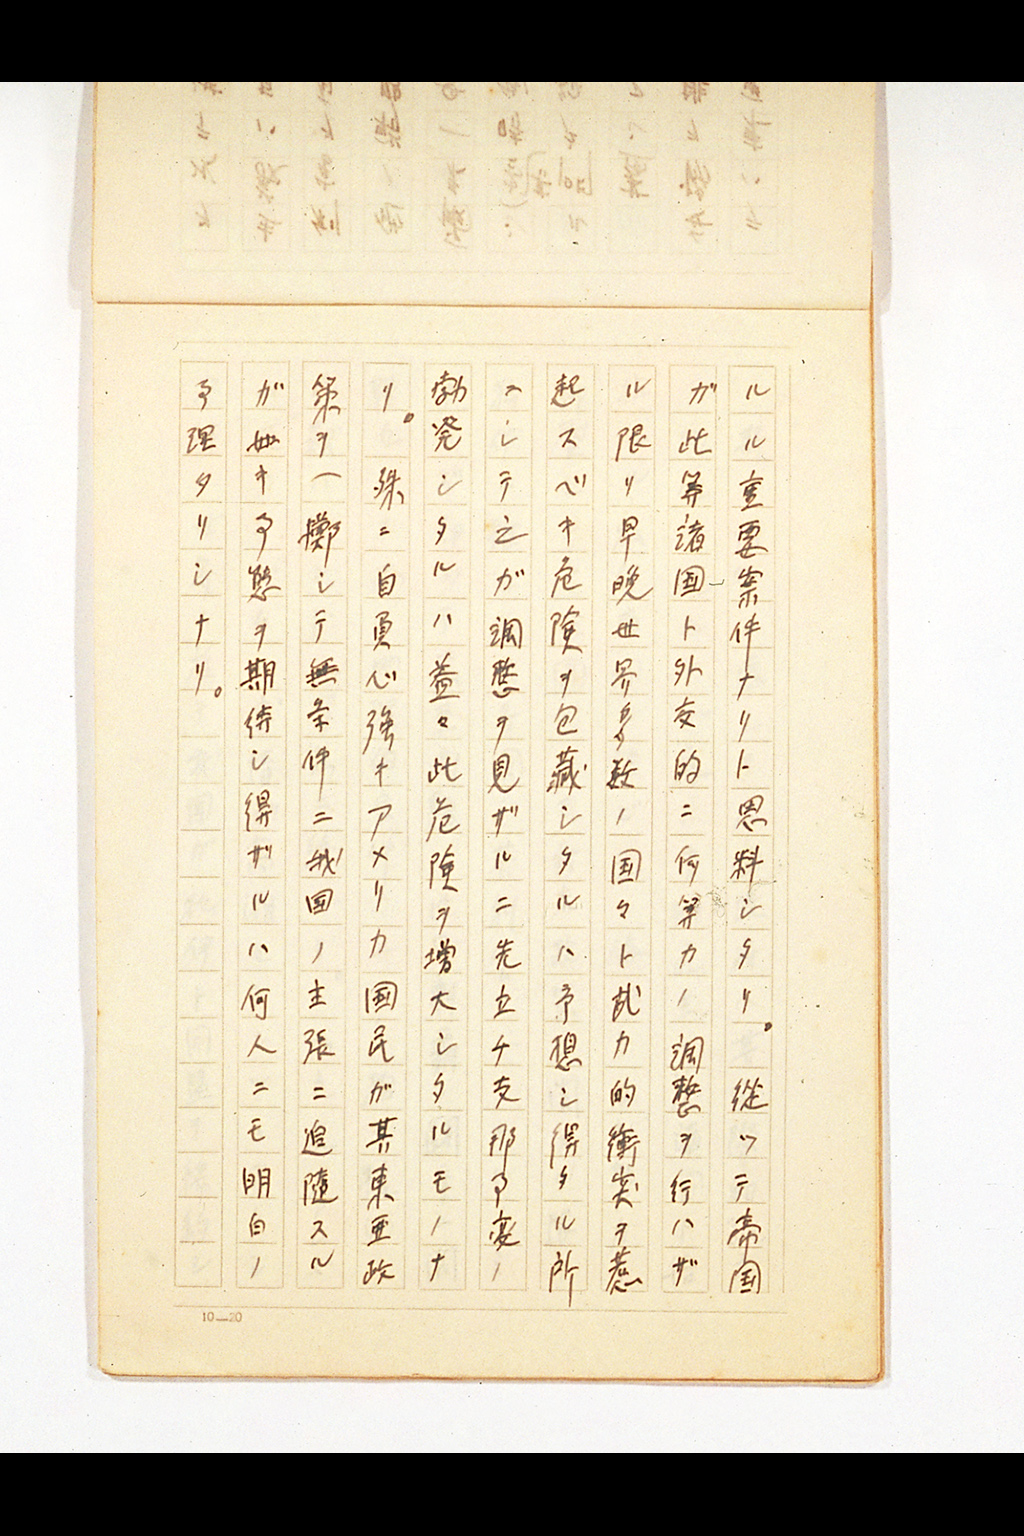 ルル重要案件ナリト思料シタリ。従ツテ帝国
ガ此等諸国ト外交的ニ何等カノ調整ヲ行ハザ
ル限リ早晩世界多数ノ国々ト武力的衝突ヲ惹
起スベキ危険ヲ包蔵シタルハ予想シ得タル所
ニシテ之ガ調整ヲ見ザルニ先立チ支那事変ノ
勃発シタルハ益々此危険ヲ増大シタルモノナ
リ。殊ニ自負心強キアメリカ国民ガ其東亜政
策ヲ一擲シテ無条件ニ我国ノ主張ニ追随スル
ガ如キ事態ヲ期待シ得ザルハ何人ニモ明白ノ
事理タリシナリ。
10—20